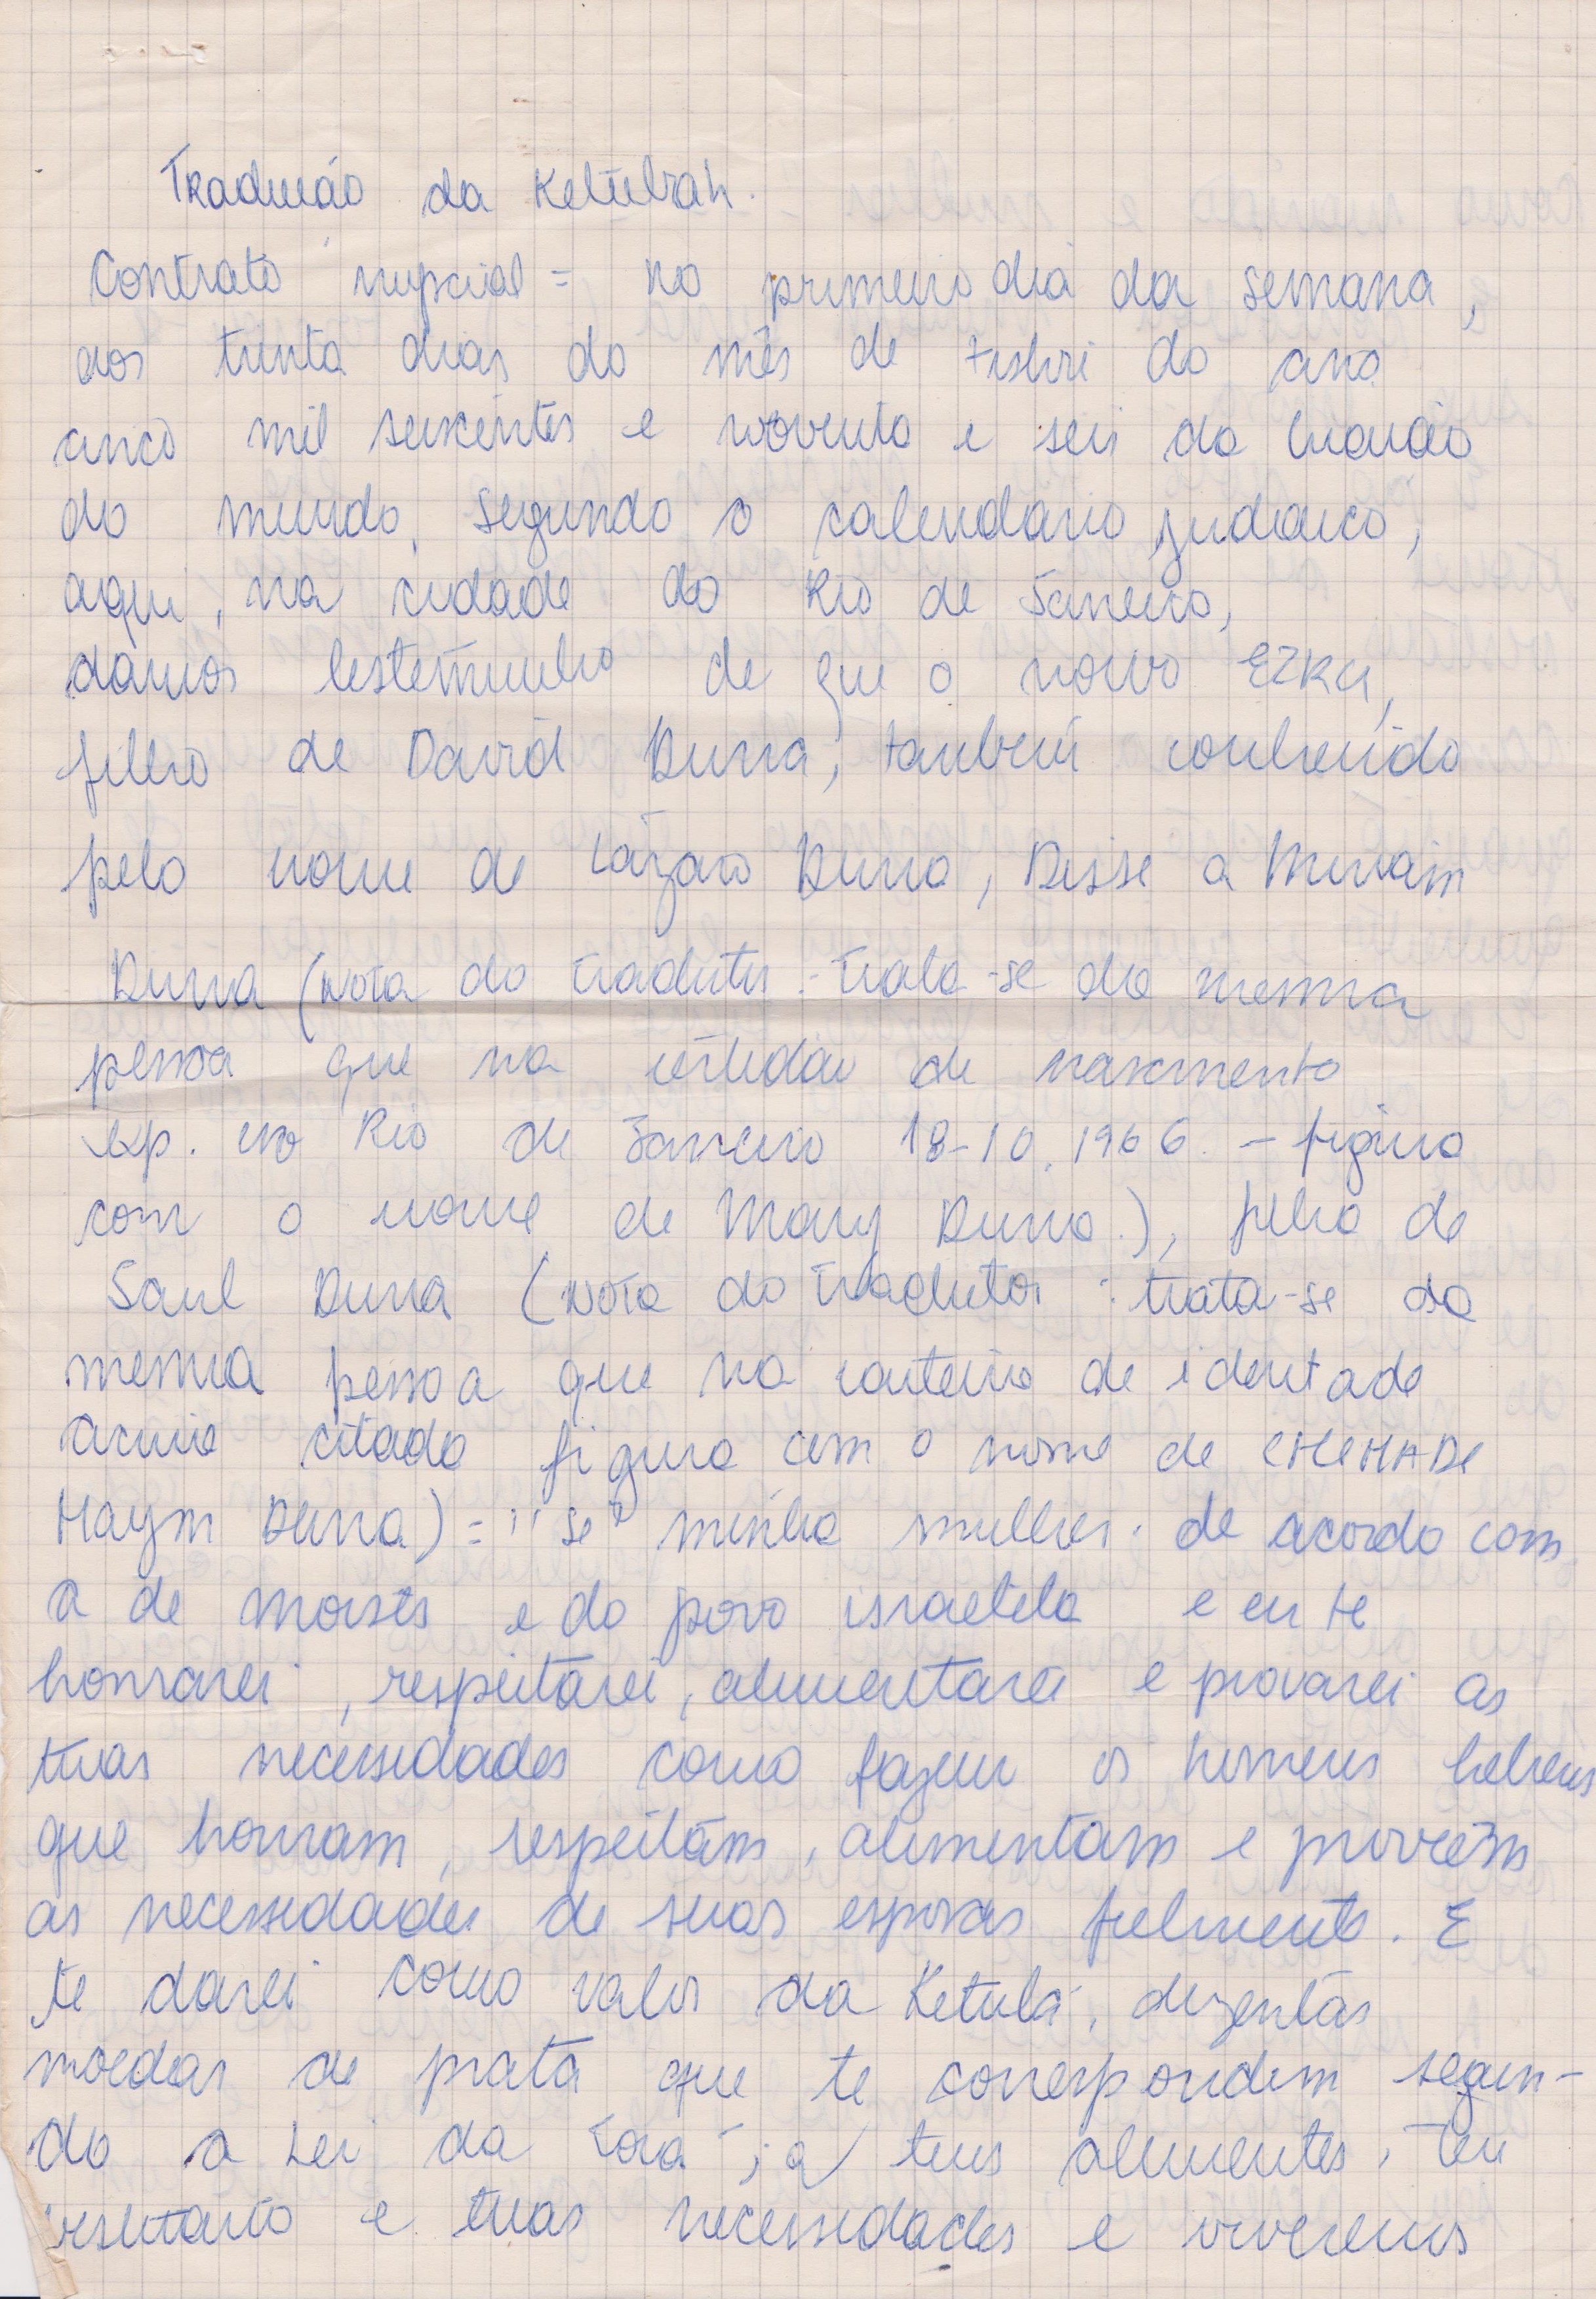 Tradução da Ketubah.
Contrato nupcial = no primeiro dia da semana,
aos trinta dias do mês de tishri do ano
cinco mil seiscentos e noventa e seis da Criação
do mundo, segundo o calendário judaico,
aqui, na cidade do Rio de Janeiro,
damos testemunho de que o noivo EZRA,
filho de David Duna, também conhecido
pelo nome de Lázaro Duna, Disse a Miriam
Duna (Nota do tradutor: trata-se da mesma
pessoa que na certidão de nascimento
exp. no Rio de Janeiro 18-10.1966 - figura
com o nome de Mary Duna.), filha de
Saul Duna (Nota do tradutor: trata-se da
mesma pessoa que na carteira de identade
acima citada figura com o nome de CHEHADE
Haym Duna) = "sê minha mulher. de acordo com
a de Moisés e do povo israelita e eu te
honrarei, respeitarei, alimentarei e provarei as
tuas necessidades como fazem os homens hebreus
que honram, respeitam, alimentam e provêem
as necessidades de suas esposas fielmente. E
te darei como valor da Ketubá, duzentas
moedas de prata que te correspondem segun-
do a Lei da Torá; e teus alimentos, teu
vestuário e tuas necessidades e viveremos